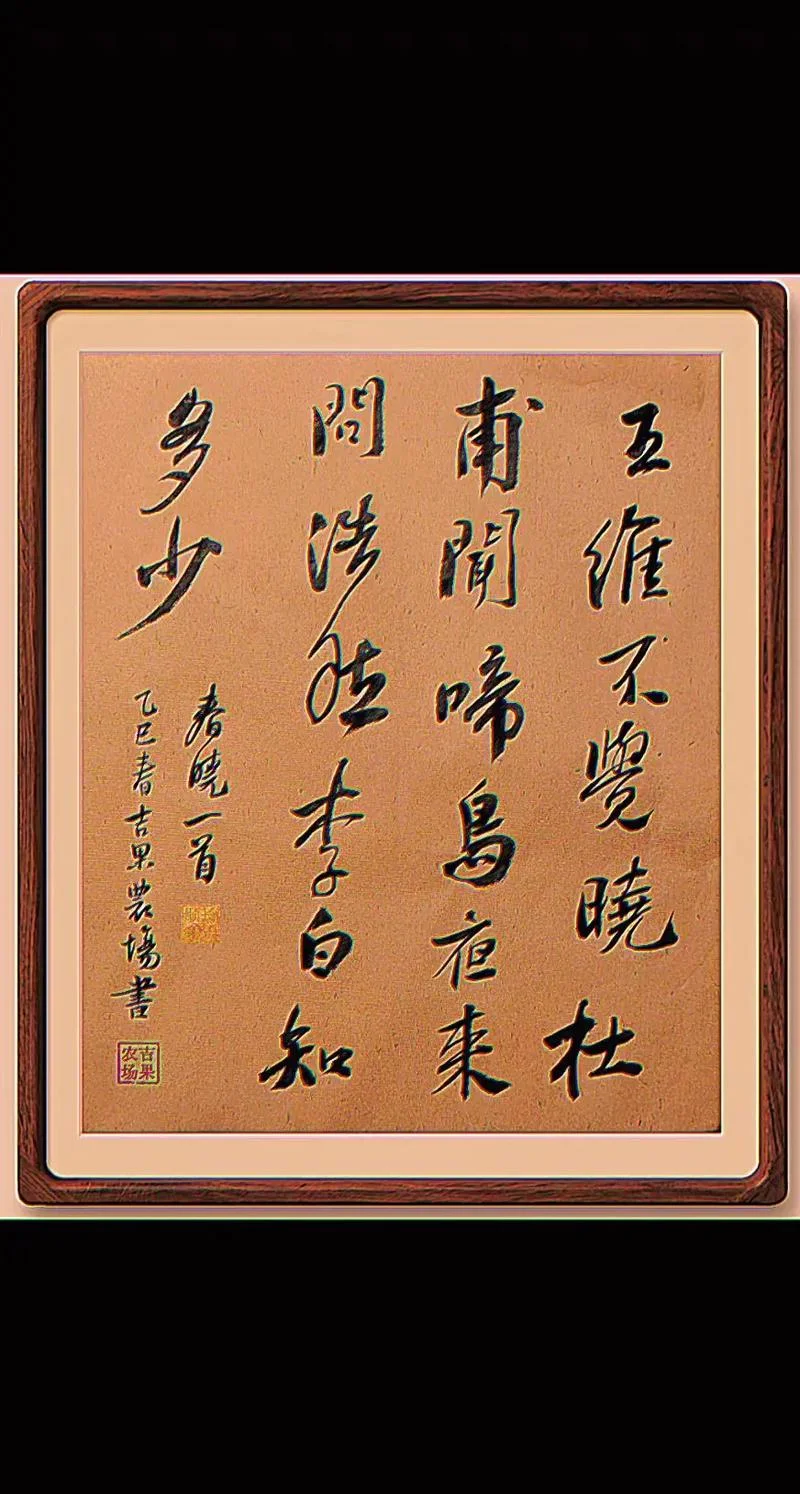 王維不覺曉杜
甫聞啼鳥夜来
問浩然李白知
多少
春曉一首
乙巳春吉果農場書
吉果
农场